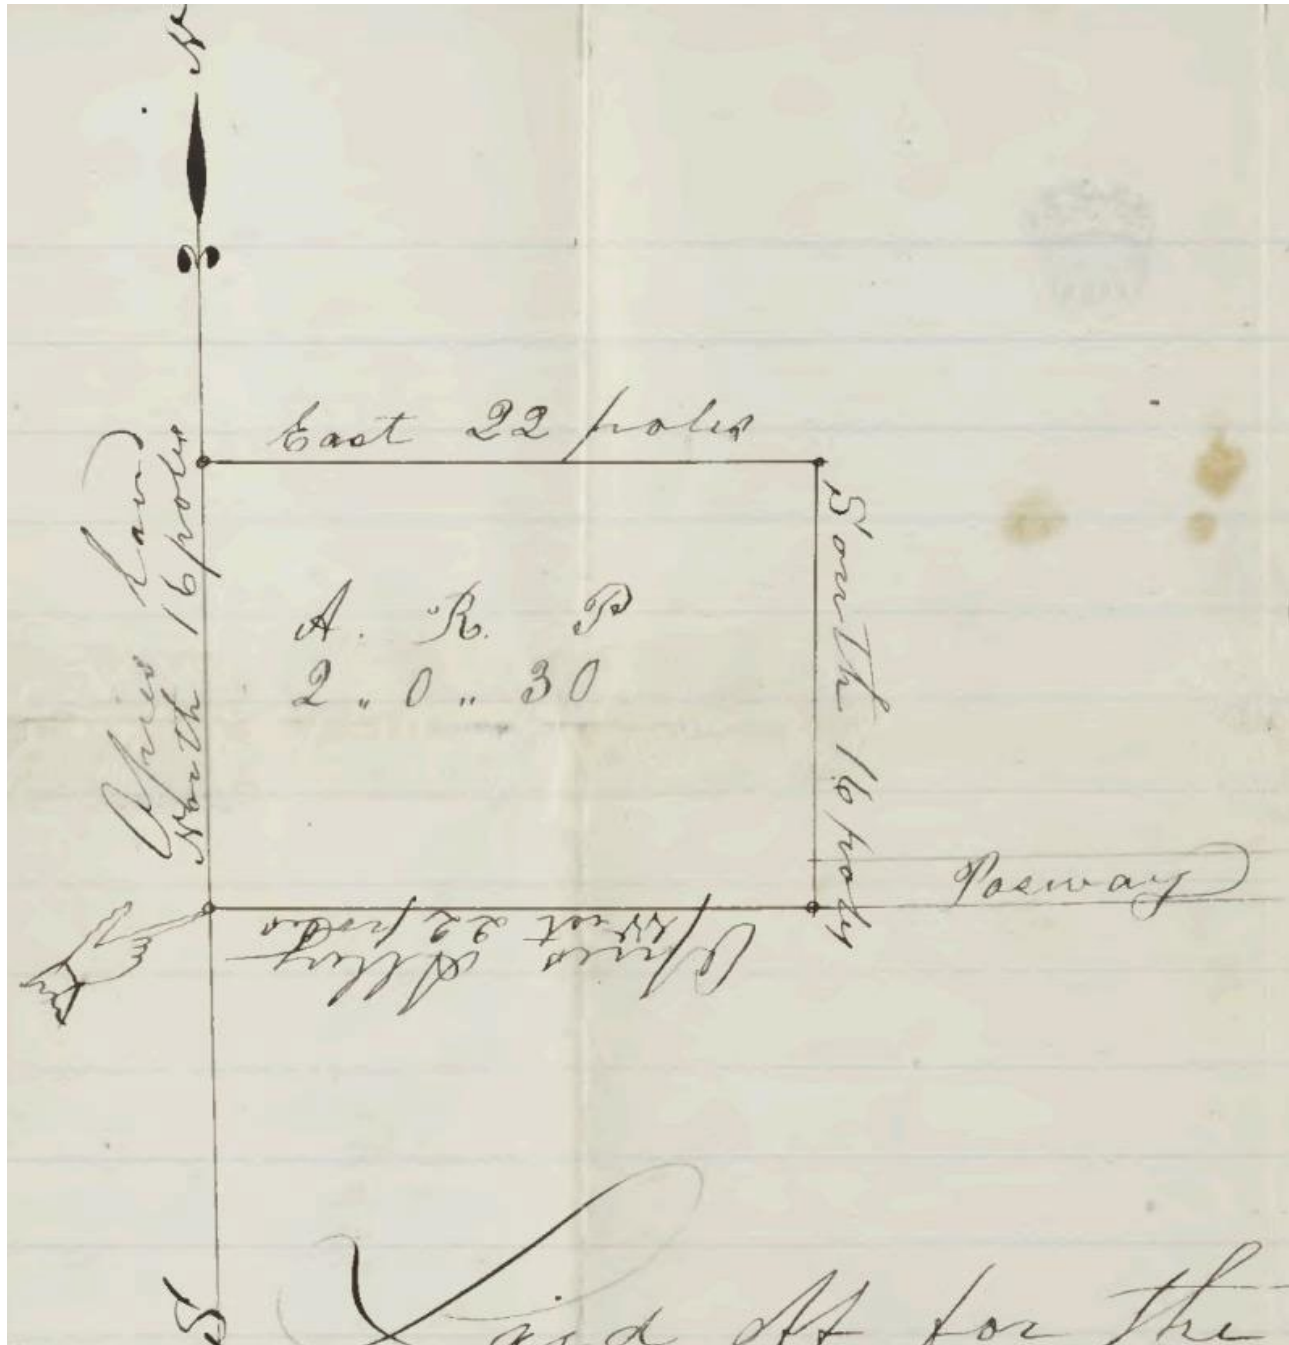 N
East 22 poles
Apies Land
North 16 poles
A. R. P
2 „ 0 „ 30
South 16 poles
Pasway
West 22 poles
Apies Alley
S
Laid off for the